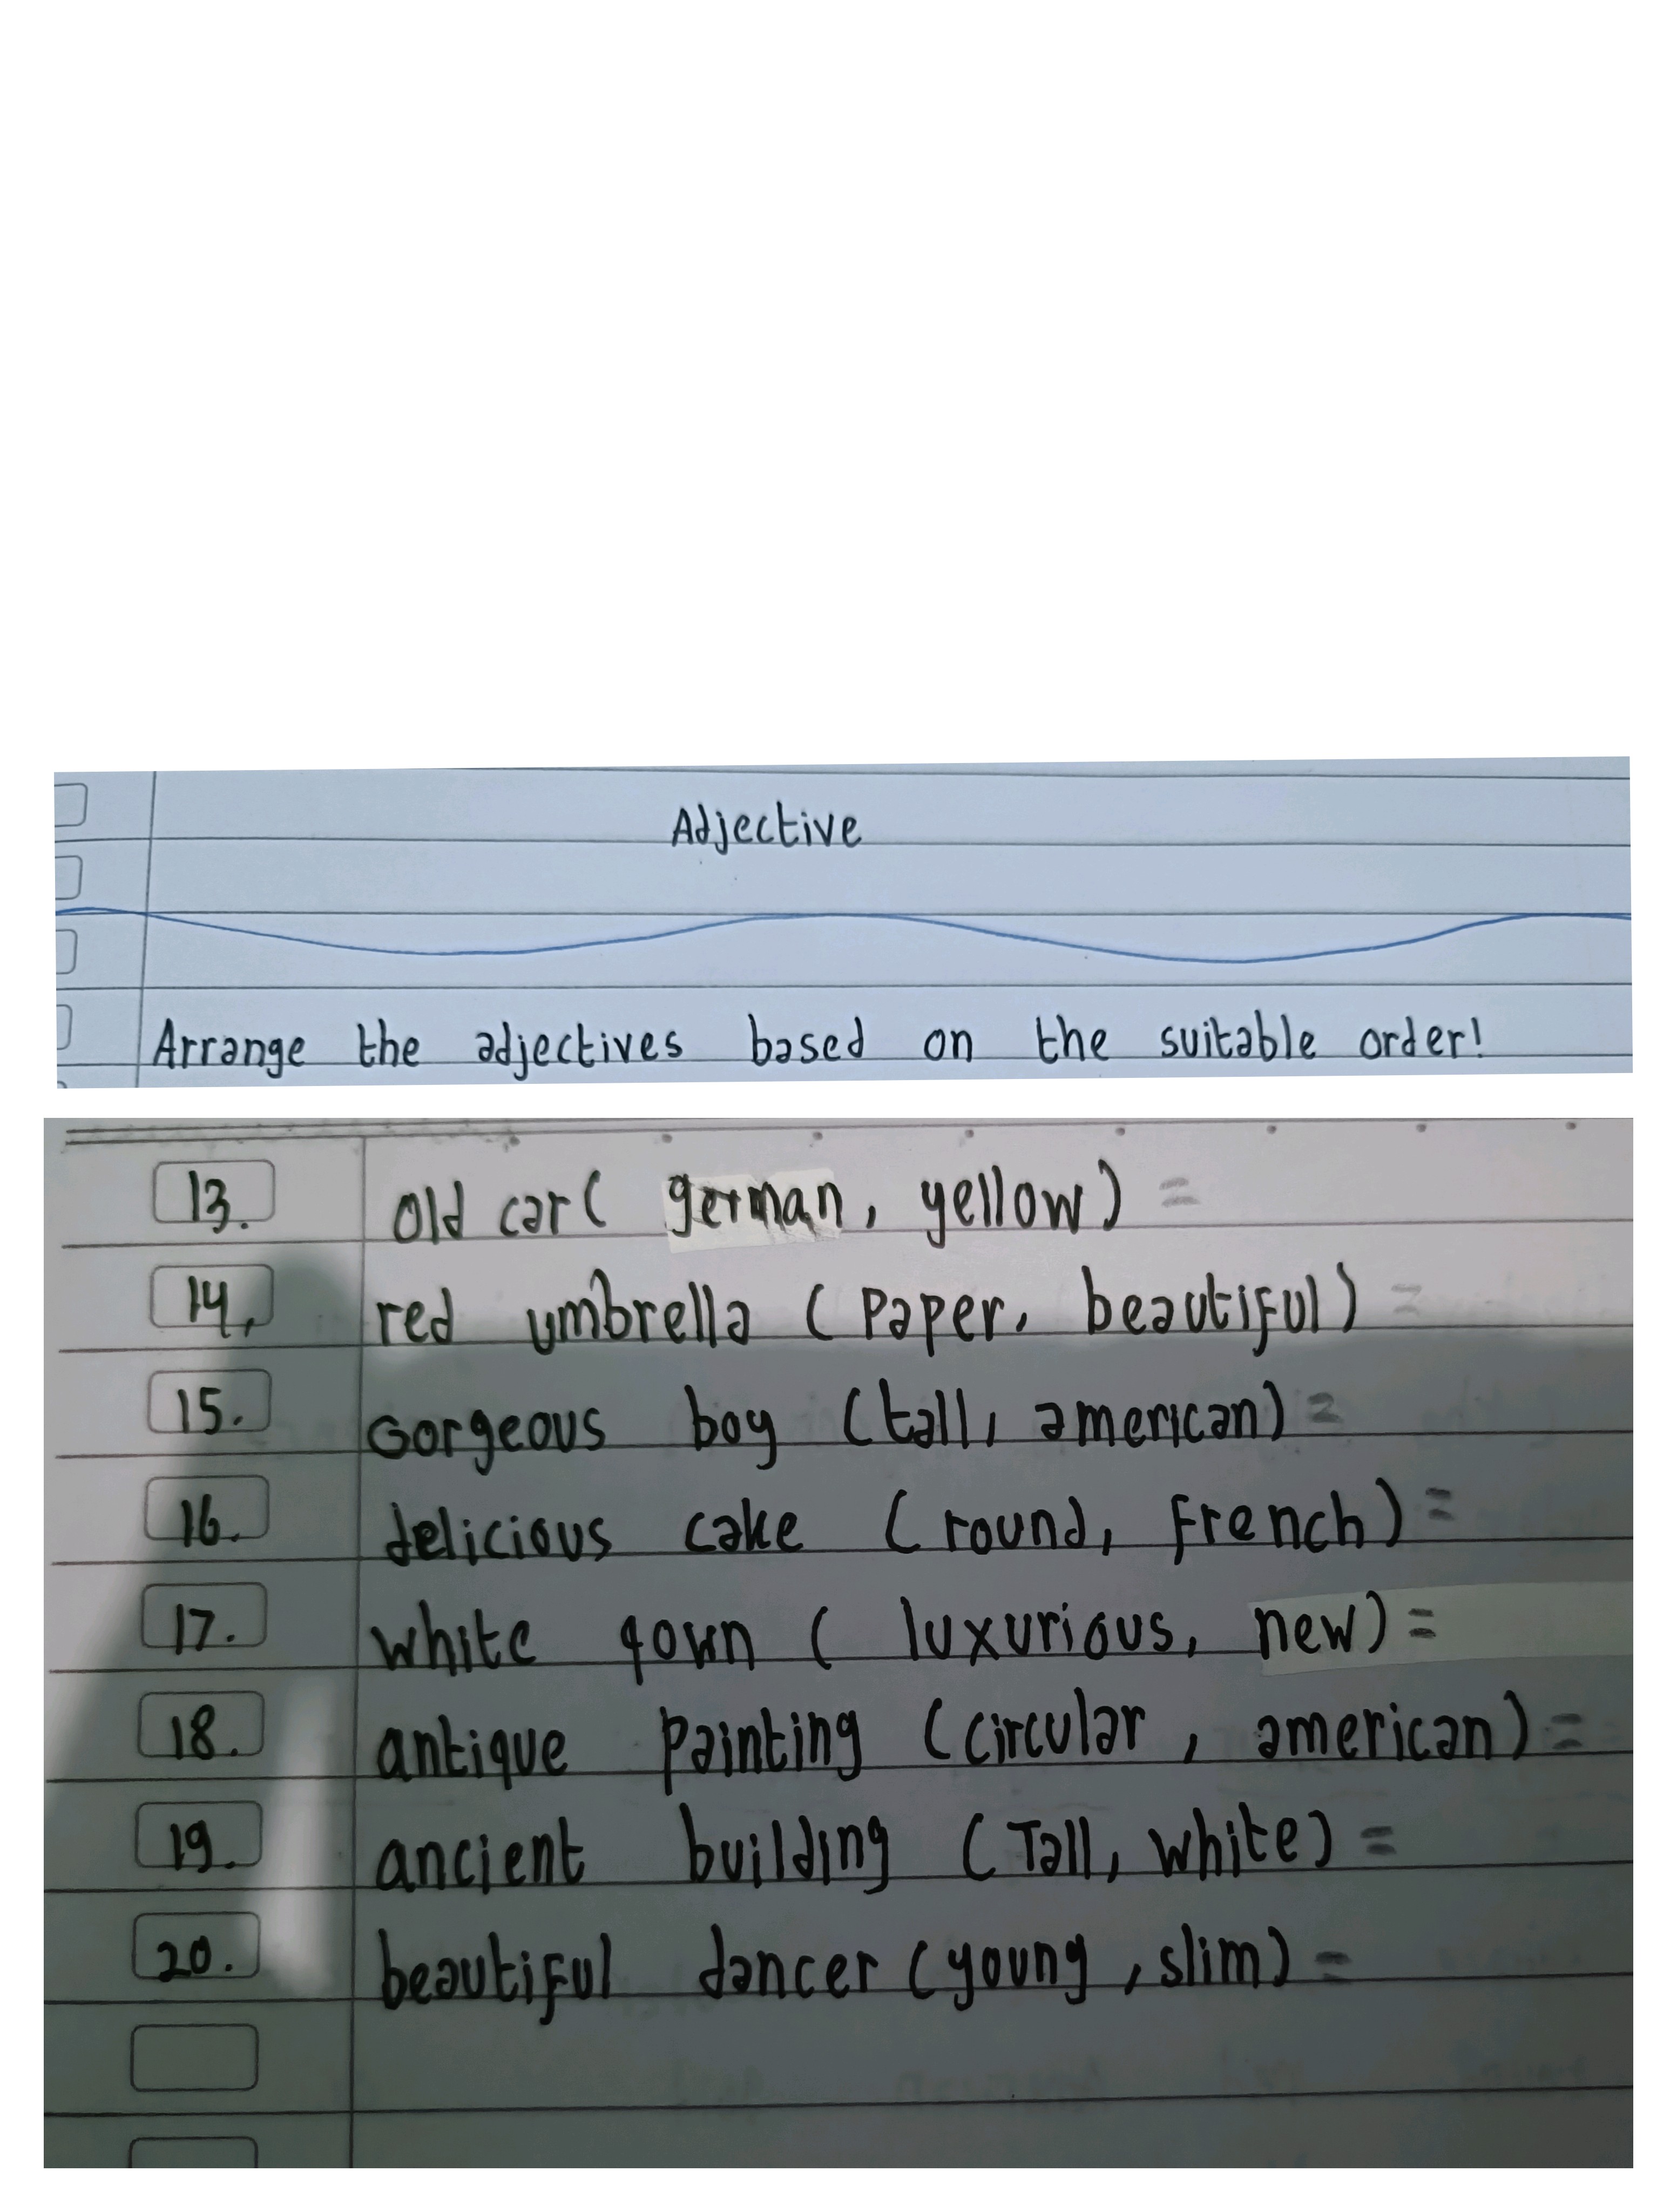 Adjective
Arrange the adjectives based on the suitable order!
13. old car ( german, yellow) =
14. red umbrella ( Paper, beautiful) =
15. Gorgeous boy (tall, american) =
16. delicious cake ( round, French) =
17. white gown ( luxurious, new) =
18. antique Painting (circular, american) =
19. ancient building (Tall, white) =
20. beautiful dancer (young, slim) =